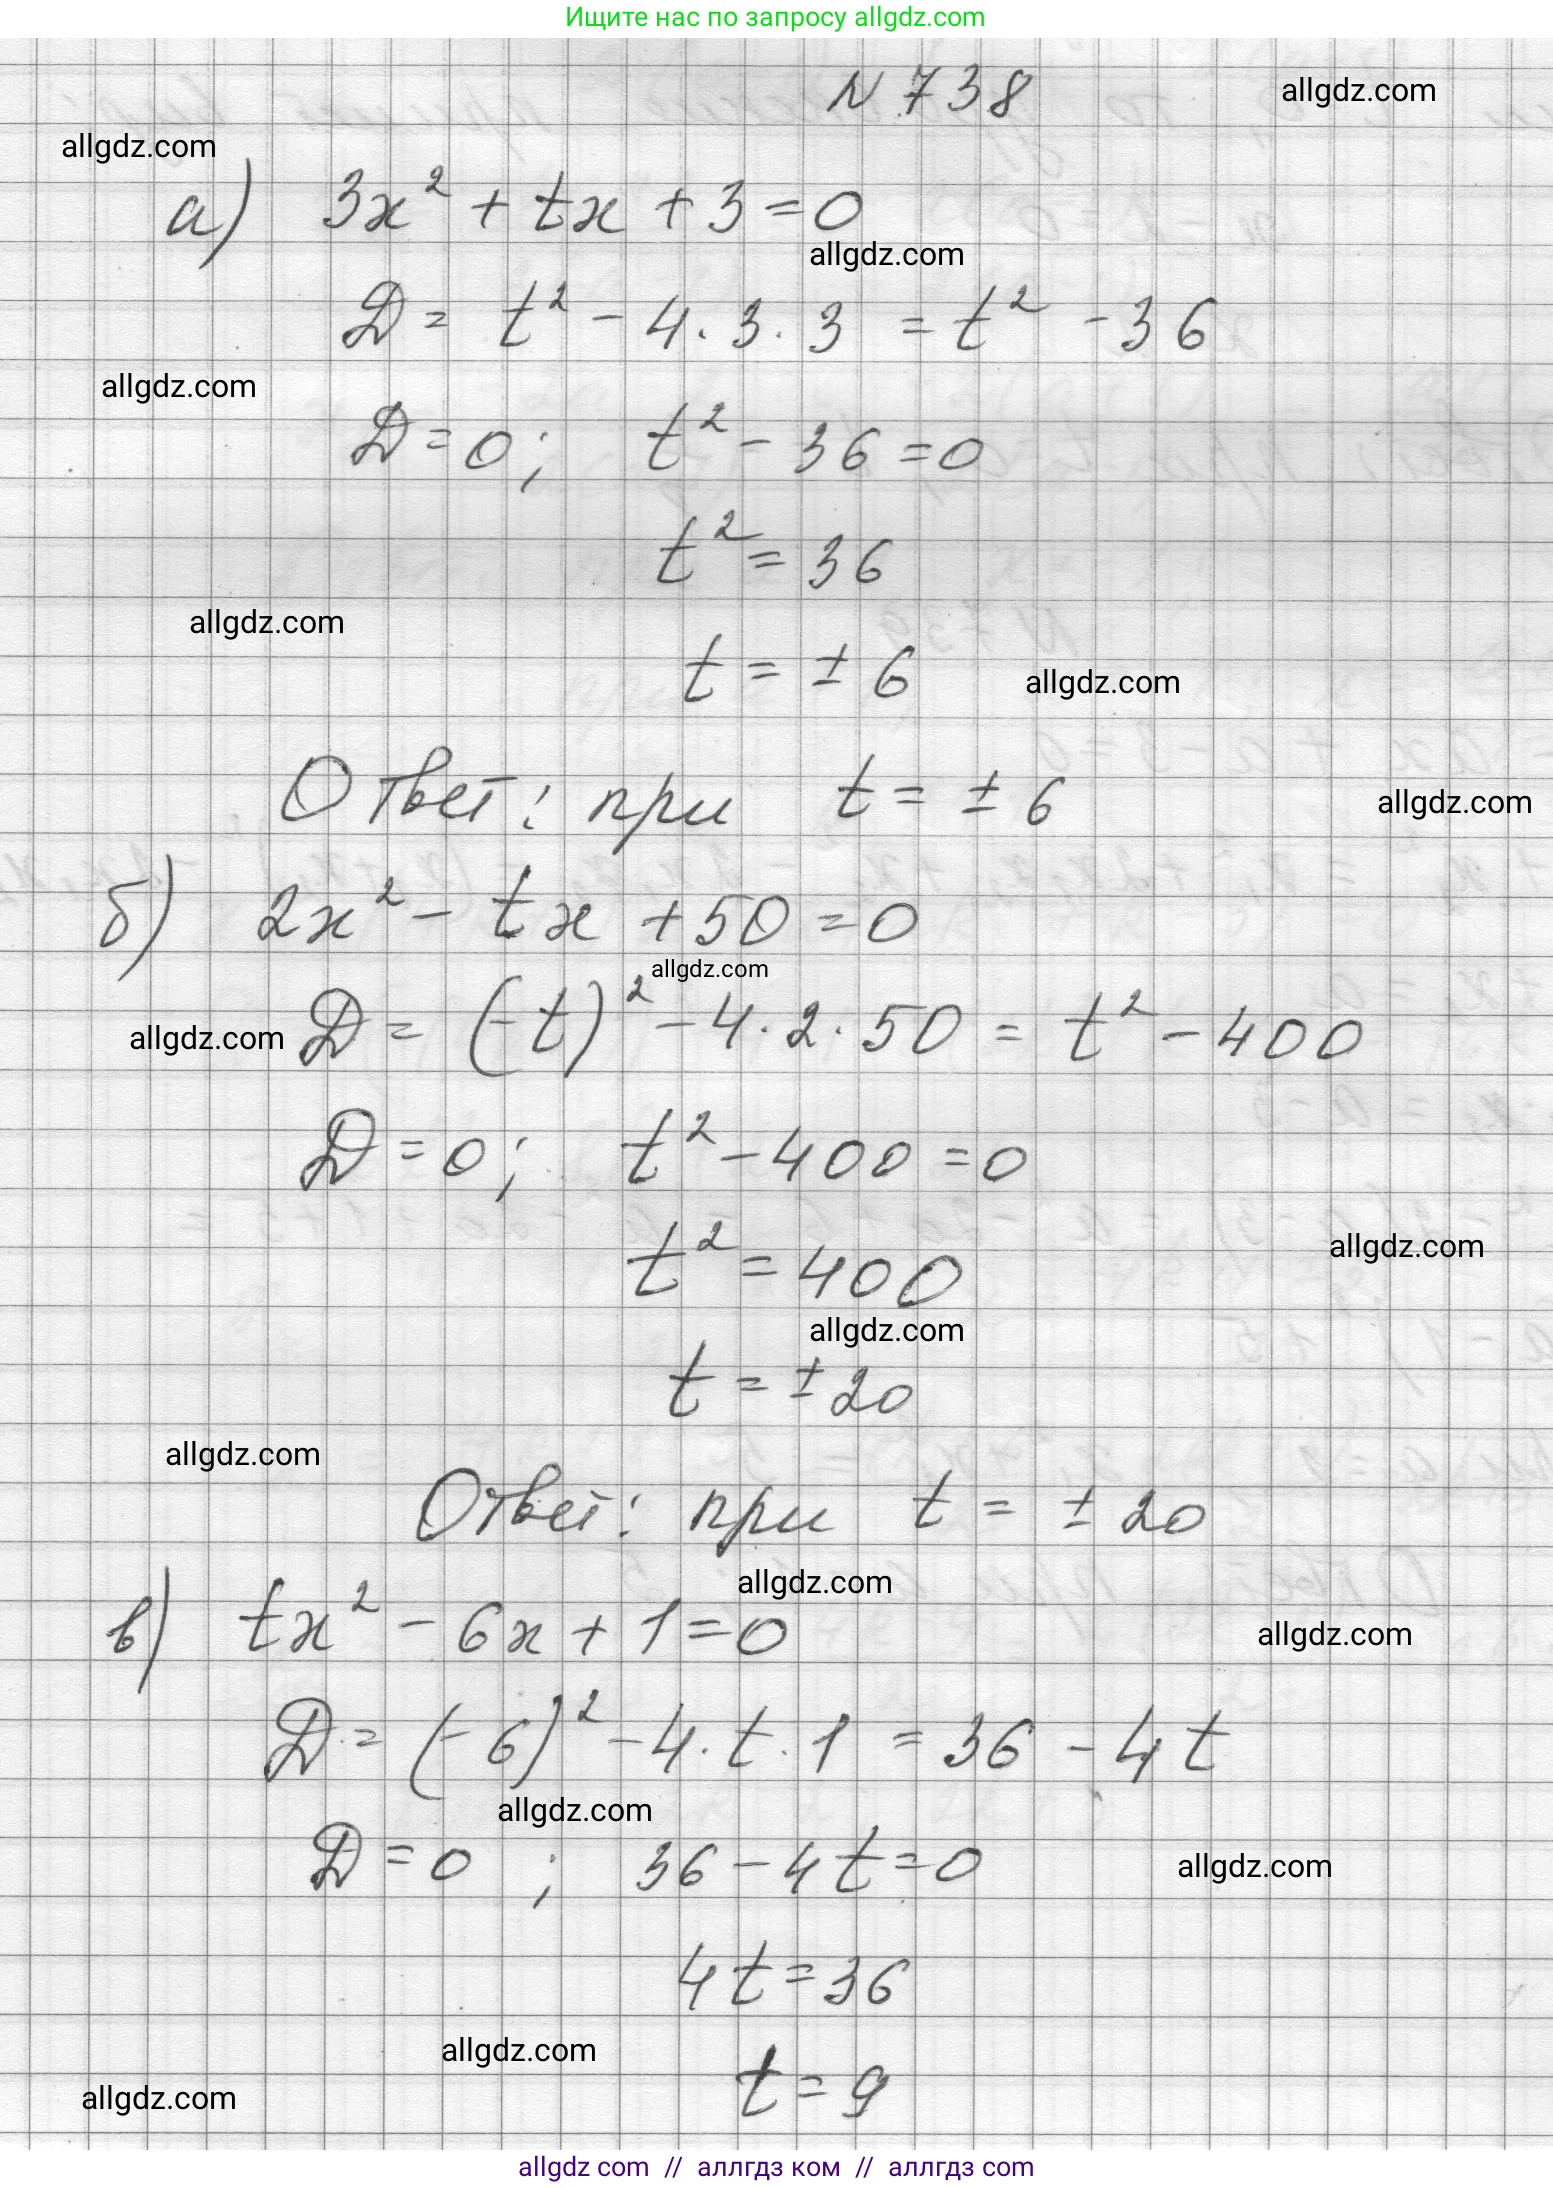 Ищите нас по запросу allgdz.com
N 738
allgdz.com
allgdz.com
а) 3x² + tx + 3 = 0
allgdz.com
D = t² - 4 · 3 · 3 = t² - 36
allgdz.com
D = 0; t² - 36 = 0
t² = 36
allgdz.com
t = ± 6
allgdz.com
Ответ: при t = ± 6
allgdz.com
б) 2x² - tx + 50 = 0
allgdz.com
D = (-t)² - 4 · 2 · 50 = t² - 400
allgdz.com
D = 0; t² - 400 = 0
allgdz.com
t² = 400
allgdz.com
t = ± 20
allgdz.com
Ответ: при t = ± 20
allgdz.com
в) tx² - 6x + 1 = 0
allgdz.com
D = (-6)² - 4 · t · 1 = 36 - 4t
allgdz.com
D = 0; 36 - 4t = 0
allgdz.com
4t = 36
allgdz.com
t = 9
allgdz.com
allgdz com // аллгдз ком // аллгдз com